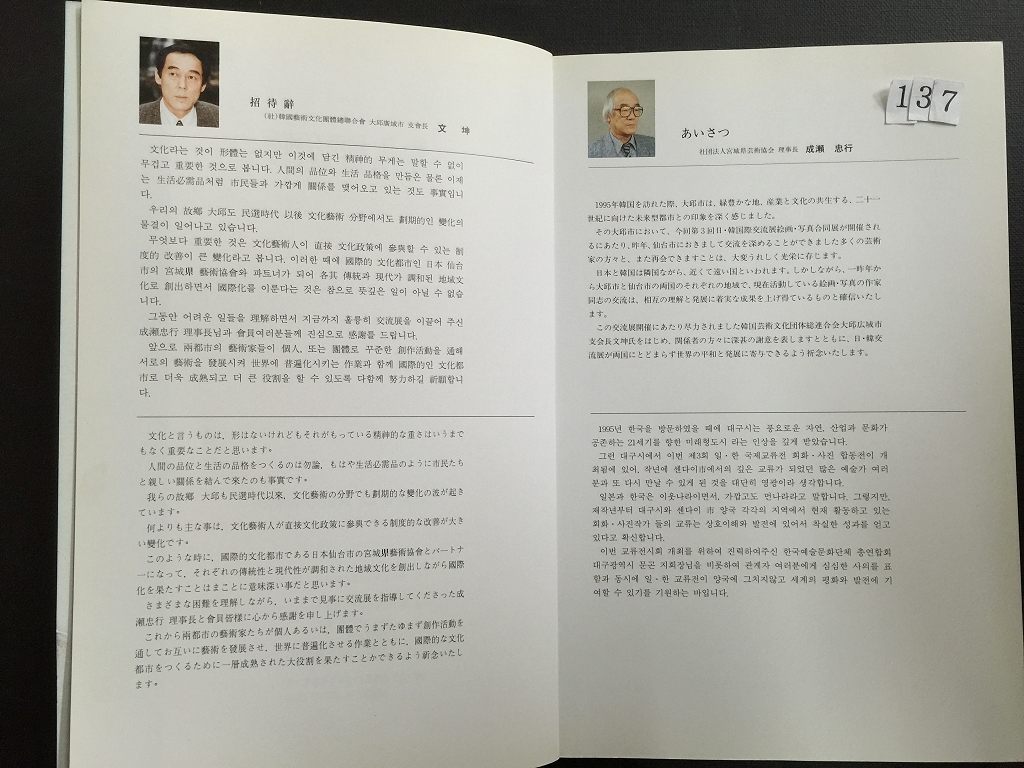 招待辭
(社)韓國藝術文化團體總聯合會 大邱廣域市 支會長 文 坤
文化라는 것이 形體는 없지만 이것에 담긴 精神的 무게는 말할 수 없이
무겁고 重要한 것으로 봅니다. 人間의 品位와 生活 品格을 만듬은 물론 이제
는 生活必需品처럼 市民들과 가깝게 關係를 맺어오고 있는 것도 事實입니
다.
우리의 故鄕 大邱도 民選時代 以後 文化藝術 分野에서도 劃期的인 變化의
물결이 일어나고 있습니다.
무엇보다 重要한 것은 文化藝術人이 直接 文化政策에 參與할 수 있는 制
度的 改善이 큰 變化라고 봅니다. 이러한 때에 國際的 文化都市인 日本 仙台
市의 宮城県 藝術協會와 파트너가 되어 各其 傳統과 現代가 調和된 地域文
化로 創出하면서 國際化를 이룬다는 것은 참으로 뜻깊은 일이 아닐 수 없습
니다.
그동안 어려운 일들을 理解하면서 지금까지 훌륭히 交流展을 이끌어 주신
成瀬忠行 理事長님과 會員여러분들께 진심으로 感謝를 드립니다.
앞으로 兩都市의 藝術家들이 個人, 또는 團體로 꾸준한 創作活動을 通해
서로의 藝術을 發展시켜 世界에 普遍化시키는 作業과 함께 國際的인 文化都
市로 더욱 成熟되고 더 큰 役割을 할 수 있도록 다함께 努力하길 祈願합니
다.
文化と言うものは，形はないけれどもそれがもっている精神的な重さはいうまで
もなく重要なことだと思います。
人間の品位と生活の品格をつくるのは勿論，もはや生活必需品のように市民たち
と親しい關係を結んで來たのも事實です。
我らの故鄕 大邱も民選時代以來，文化藝術の分野でも劃期的な變化の波が起き
ています。
何よりも主な事は，文化藝術人が直接文化政策に參與できる制度的な改善が大き
い變化です。
このような時に，國際的文化都市である日本仙台市の宮城県藝術協會とパートナ
ーになって，それぞれの傳統性と現代性が調和された地域文化を創出しながら國際
化を果たすことはまことに意味深い事だと思います。
さまざまな困難を理解しながら，いままで見事に交流展を指導してくださった成
瀬忠行 理事長と會員皆様に心から感謝を申し上げます。
これから兩都市の藝術家たちが個人あるいは，團體でうまずたゆまず創作活動を
通してお互いに藝術を發展させ，世界に普遍化させる作業とともに，國際的な文化
都市をつくるために一層成熟された大役割を果たすことかできるよう祈念いたし
ます。
137
あいさつ
社団法人宮城県芸術協会 理事長 成瀬 忠行
1995年韓国を訪れた際，大邱市は，緑豊かな地，産業と文化の共生する，二十一
世紀に向けた未来型都市との印象を深く感じました。
その大邱市において，今回第３回日・韓国際交流展絵画・写真合同展が開催され
るにあたり，昨年，仙台市におきまして交流を深めることができました多くの芸術
家の方々と，また再会できますことは，大変うれしく光栄に存じます。
日本と韓国は隣国ながら，近くて遠い国といわれます。しかしながら，一昨年か
ら大邱市と仙台市の両国のそれぞれの地域で，現在活動している絵画・写真の作家
同志の交流は，相互の理解と発展に着実な成果を上げ得ているものと確信いたしま
す。
この交流展開催にあたり尽力されました韓国芸術文化団体総連合会大邱広域市
支会長文坤氏をはじめ，関係者の方々に深甚の謝意を表しますとともに，日・韓交
流展が両国にとどまらず世界の平和と発展に寄与できるよう祈念いたします。
1995년 한국을 방문하였을 때에 대구시는 풍요로운 자연, 산업과 문화가
공존하는 21세기를 향한 미래형도시 라는 인상을 깊게 받았습니다.
그런 대구시에서 이번 제3회 일·한 국제교류전 회화·사진 합동전이 개
최됨에 있어, 작년에 센다이市에서의 깊은 교류가 되었던 많은 예술가 여러
분과 또 다시 만날 수 있게 된 것을 대단히 영광이라 생각합니다.
일본과 한국은 이웃나라이면서, 가깝고도 먼나라라고 말합니다. 그렇지만,
재작년부터 대구시와 센다이 市 양국 각각의 지역에서 현재 활동하고 있는
회화·사진작가 들의 교류는 상호이해와 발전에 있어서 착실한 성과를 얻고
있다고 확신합니다.
이번 교류전시회 개최를 위하여 진력하여주신 한국예술문화단체 총연합회
대구광역시 문곤 지회장님을 비롯하여 관계자 여러분에게 심심한 사의를 표
함과 동시에 일·한 교류전이 양국에 그치지않고 세계의 평화와 발전에 기
여할 수 있기를 기원하는 바입니다.